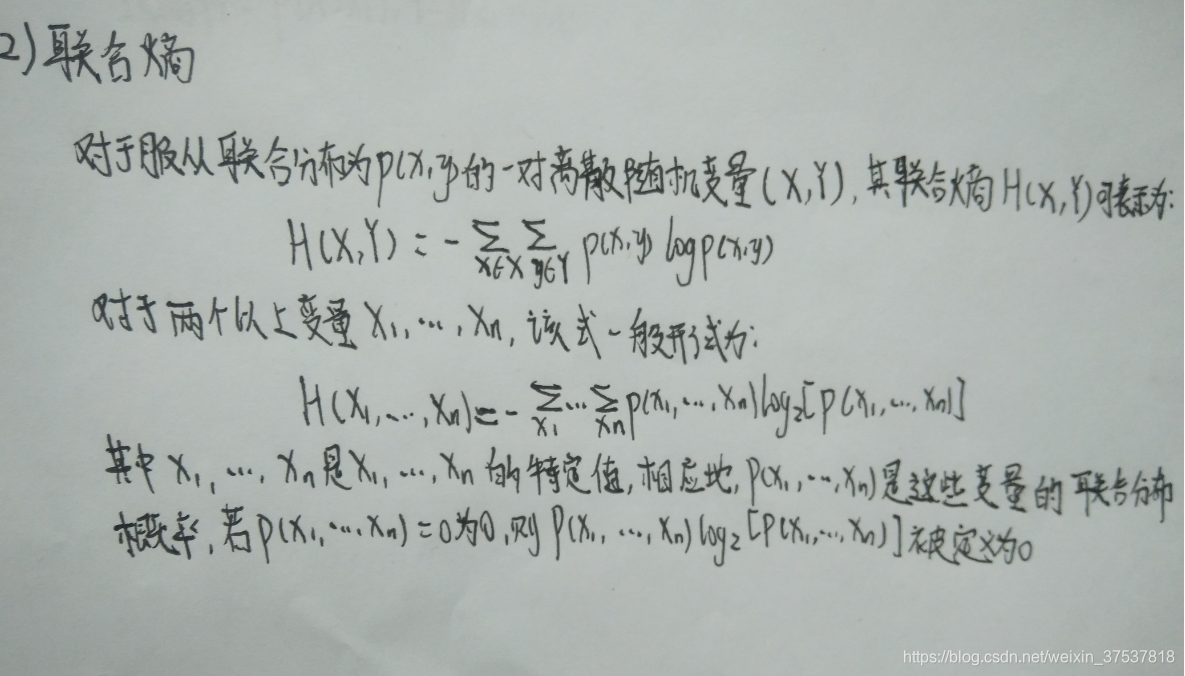 2) 联合熵
对于服从联合分布为p(x,y)的一对离散随机变量(X,Y),其联合熵H(X,Y)可表示为:
H(X,Y) = - ∑x∈X ∑y∈Y p(x,y) log p(x,y)
对于两个以上变量 X₁, …, Xₙ, 该式一般形式为:
H(X₁, …, Xₙ) = - ∑x₁ … ∑xₙ p(x₁, …, xₙ) log₂[p(x₁, …, xₙ)]
其中 x₁, …, xₙ 是 X₁, …, Xₙ 的特定值, 相应地, p(x₁, …, xₙ) 是这些变量的联合分布
概率, 若 p(x₁, …, xₙ) = 0为0, 则 p(x₁, …, xₙ) log₂[p(x₁, …, xₙ)] 被定义为0
https://blog.csdn.net/weixin_37537818